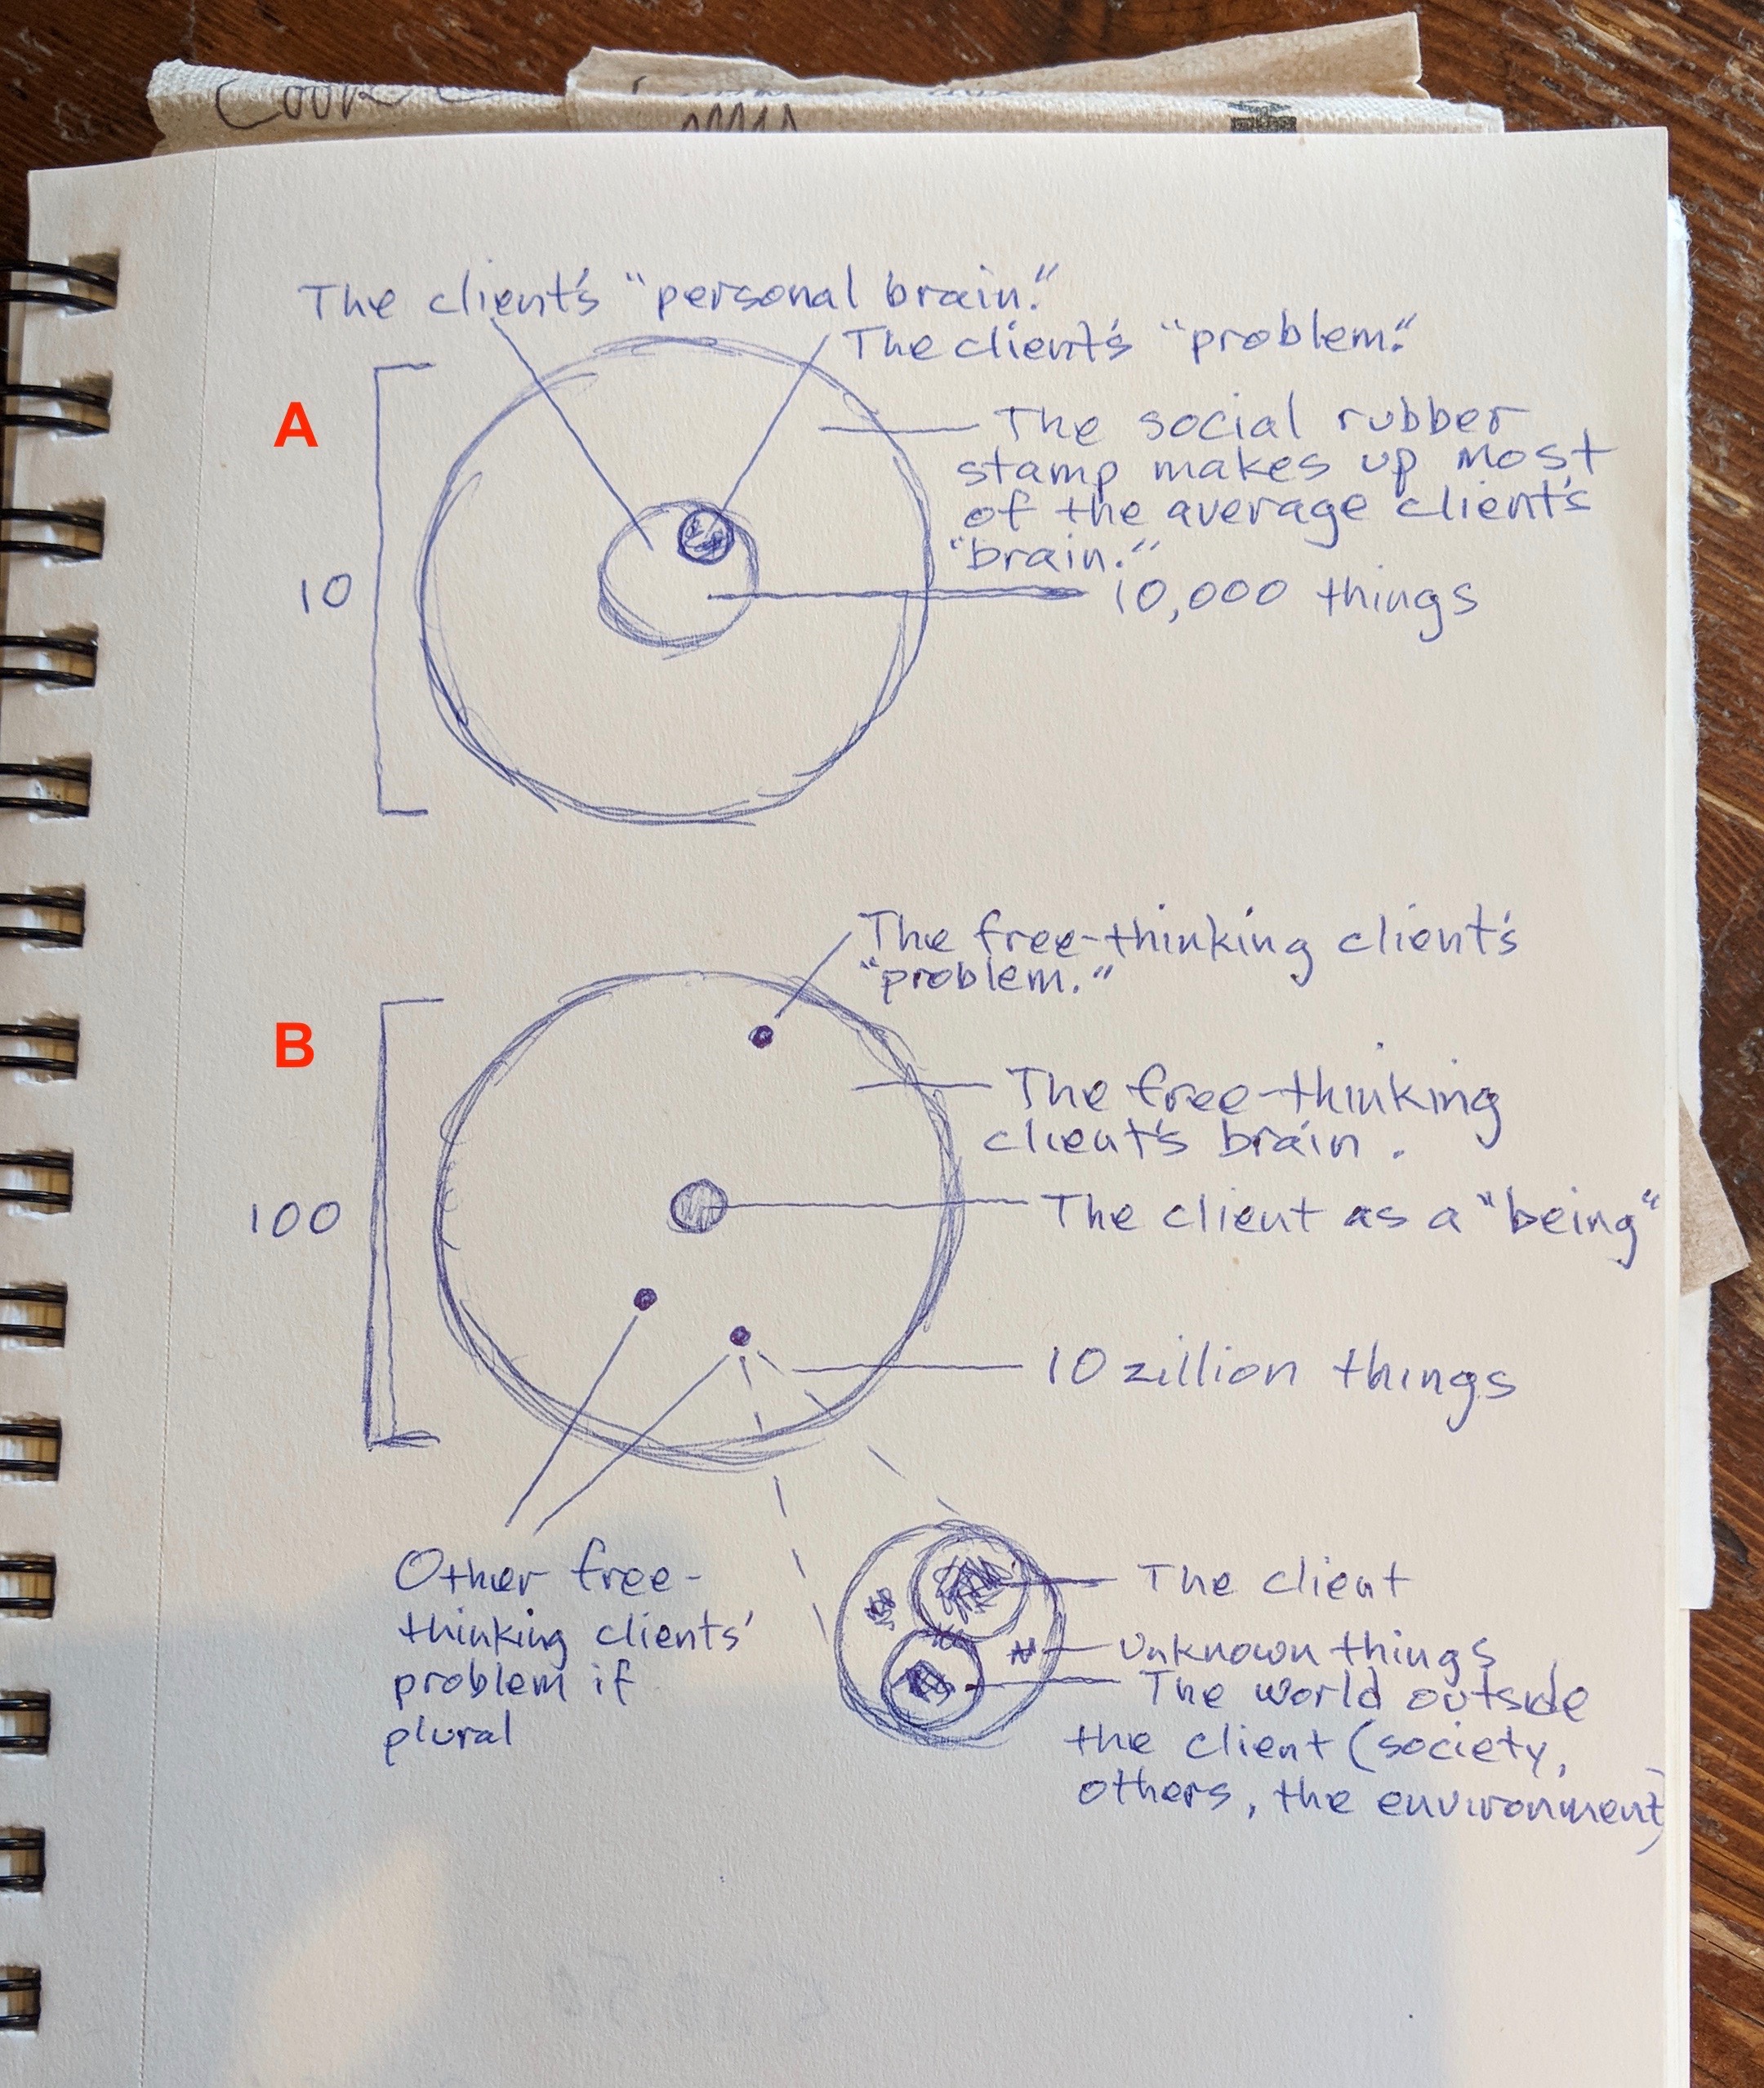 Cook
The client's "personal brain."
The client's "problem."
A
The social rubber
stamp makes up most
of the average client's
"brain."
10
10,000 things
The free-thinking client's
"problem."
B
The free-thinking
client's brain.
100
The client as a "being"
10 zillion things
Other free-
thinking clients'
problem if
plural
The client
Unknown things
The world outside
the client (society,
others, the environment)